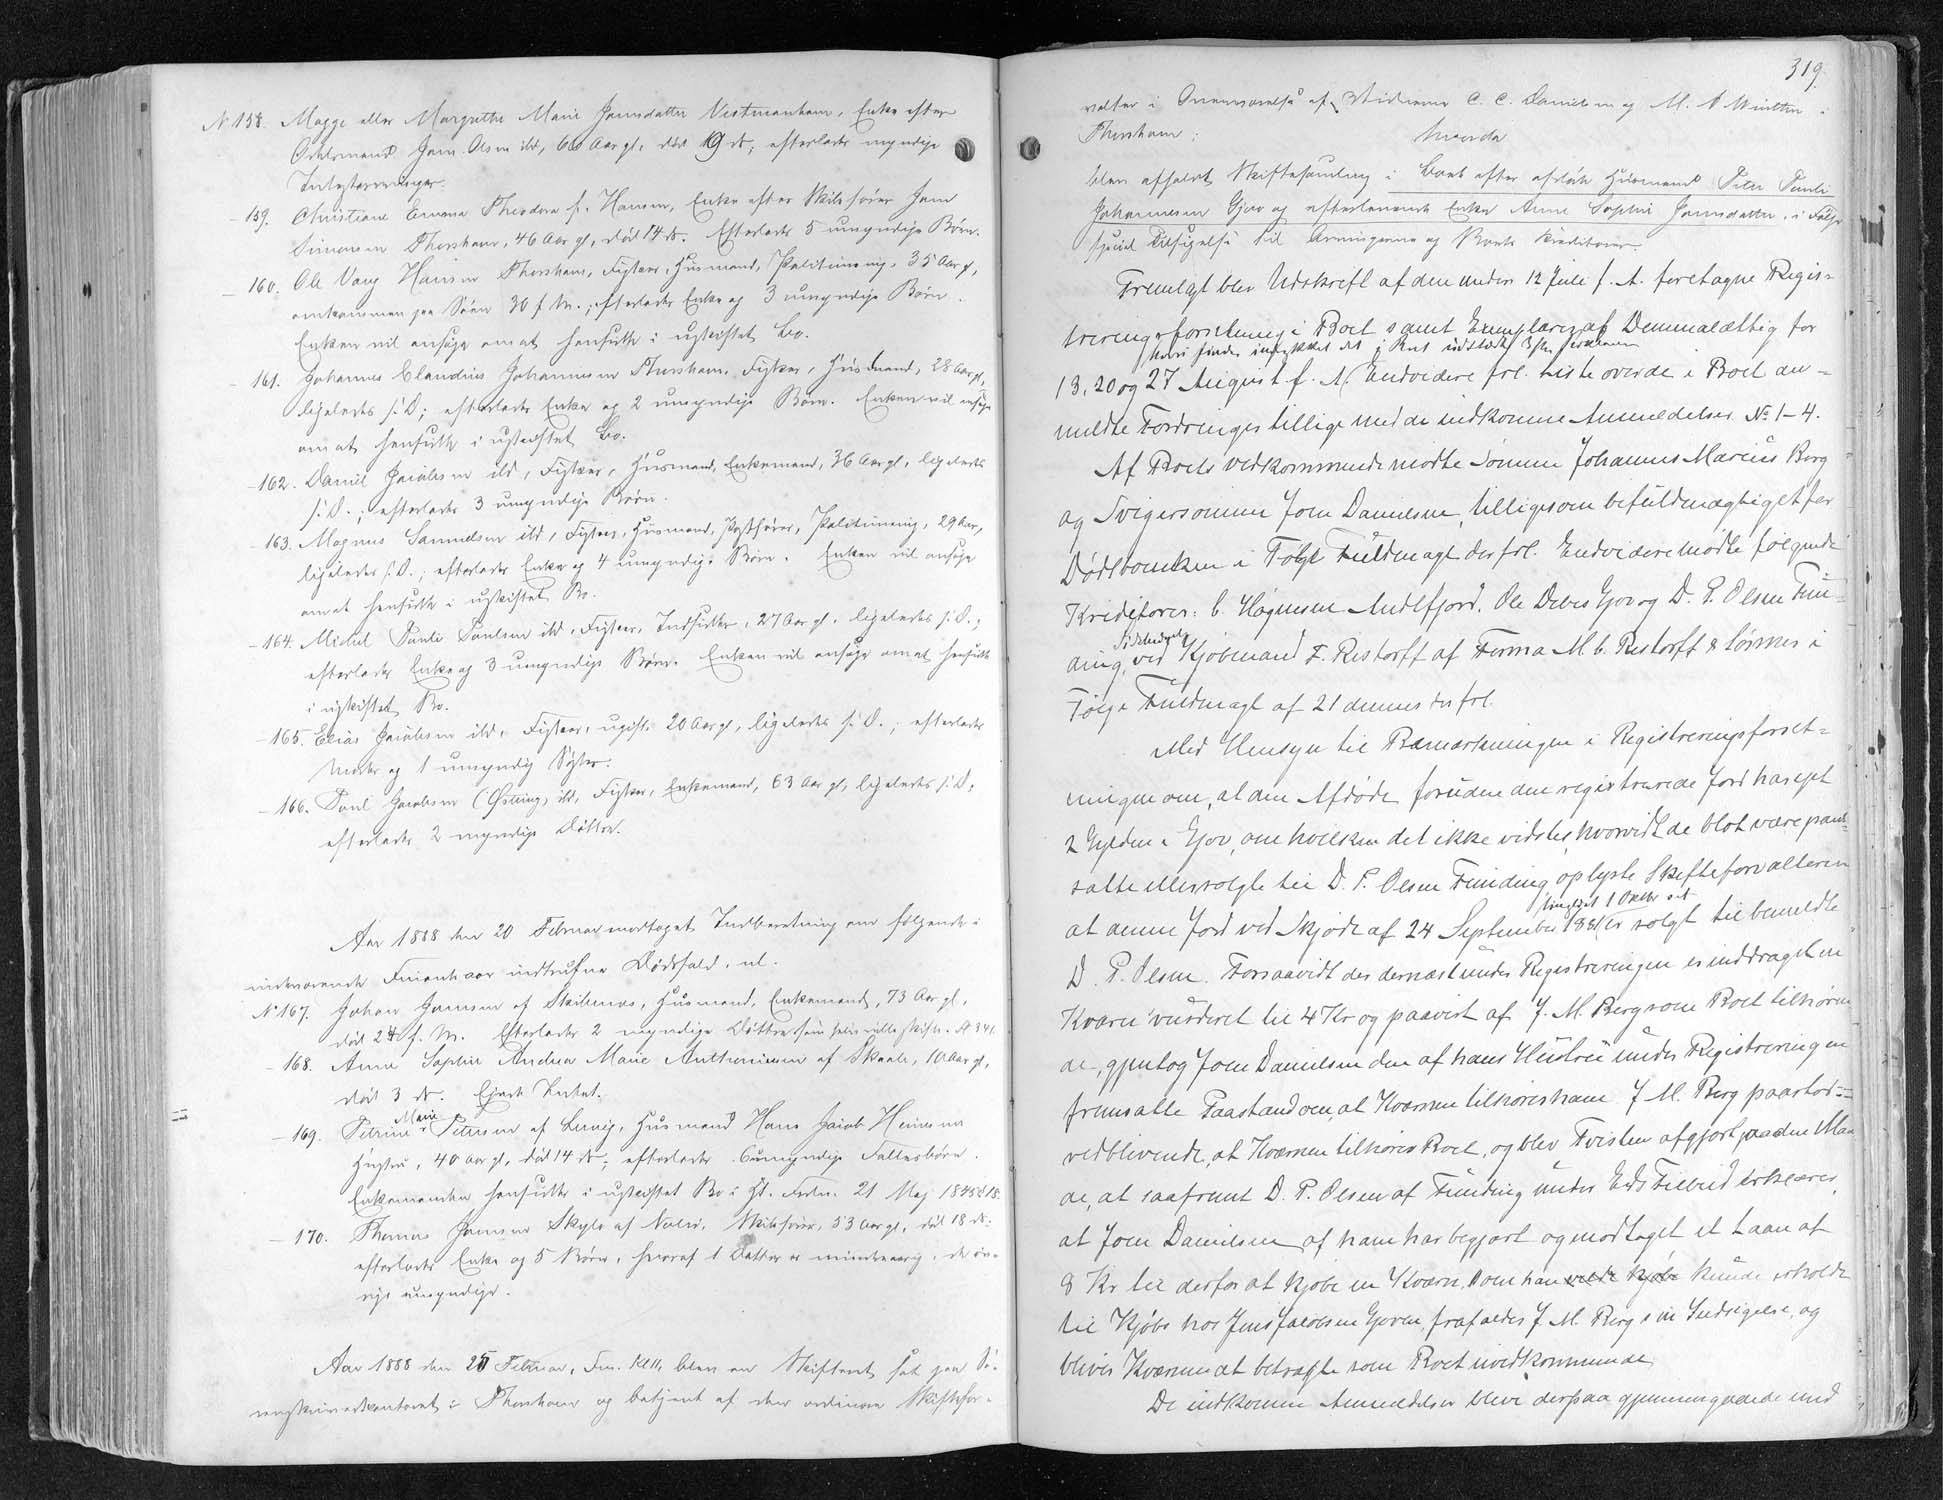 N 158. Magga eller Margrethe Marie Joensdatter Vestmanhavn, Enke efter
Odelsmand Joen Olsen ibd, 66 Aar gl. død 9 ds; efterlader myndige
Livsarvinger.
- 159. Christiane Emma Theodora f. Hansen, Enke efter Skibsfører Joen
Simonsen Thorshavn, 46 Aar gl, død 14 ds. Efterlader 5 umyndige Børn.
- 160. Ole Vang Hansen Thorshavn, Fisker, Husmand, 35 Aar gl,
omkommen paa Søen 30 f. M.; efterlader Enke og 3 umyndige Børn.
Enken vil ansøge om at hensidde i uskiftet Bo.
- 161. Johannes Claudius Johannesen Thorshavn, Fisker, Husmand, 28 Aar gl,
ligeledes s. D; efterlader Enke og 2 umyndige Børn. Enken vil ansøge
om at hensidde i uskiftet Bo.
- 162. Daniel Jacobsen ibd, Fisker, Husmand, Enkemand, 36 Aar gl, ligeledes
s. D.; efterlader 3 umyndige Børn.
- 163. Magnus Samuelsen ibd, Fisker, Husmand, 29 Aar,
ligeledes s. D.; efterlader Enke og 4 umyndige Børn. Enken vil ansøge
om at hensidde i uskiftet Bo.
- 164. Michel Pauli Poulsen ibd, Fisker, Indsidder, 27 Aar gl. ligeledes s. D.;
efterlader Enke og 3 umyndige Børn. Enken vil ansøge om at hensidde
i uskiftet Bo.
- 165. Elias Jacobsen ibd, Fisker, ugift, 20 Aar gl, ligeledes s. D.; efterlader
Moder og 1 umyndig Søster.
- 166. Poul Jacobsen ibd, Fisker, Enkemand, 63 Aar gl, ligeledes s. D,
efterlader 2 myndige Døttre.
Aar 1888 den 20 Februar modtaget Indberetning om følgende i
indeværende Fmerkaar indtrufne Dødsfald, nl.
N 167. Johan Joensen af Skibenæs, Husmand, Enkemand, 73 Aar gl,
død 24 f. M. Efterlader 2 myndige Døttre som selv ville skifte. 341.
- 168. Anna Sophie Andrea Marie Anthoniussen af Skaale, 10 Aar gl,
død 3 ds. Ejede Intet.
- 169. Petrine Marie Petersen af Lervig, Husmand Hans Jacob Heinesens
Hustru, 40 Aar gl, død 14 ds; efterlader 6 umyndige Fællesbørn.
Enkemanden hensidder i uskiftet Bo i H. t. Frdn. 21 Maj 1845 § 18.
- 170. Thomas Joensen Skylo af Nolsø, Skibsfører, 53 Aar gl, død 18 ds:
efterlader Enke og 5 Børn, hvoraf 1 Datter er mindreaarig, de øv-
rige umyndige.
Aar 1888 den 25 Februar, Fm. Kl 11, blev en Skifteret sat paa So-
renskriverkontoret i Thorshavn og betjent af den ordinære Skiftefor-
319.
valter i Overværelse af Vidnerne C. C. Danielsen og M. A Winther
Thorshavn:
hvorda
blev afholdt Skiftesamling i Boet efter afdøde Husmand Peter Pauli
Johannesen Gjov og efterlevende Enke Anne Sophie Joensdatter, i Følge
speciel Tilsigelse til Arvingerne og Boets Kreditorer.
Fremlagt blev Udskrift af den under 12 Juli f. A. foretagne Regis=
treringsforretning i Boet samt Exemplarer af Dimmalætting for
hvori findes indrykket det i Boet udstædte Proclama
13, 20 og 27 August f. A. Endvidere frl. Liste over de i Boet an=
meldte Fordringer tillige med de indkomne Anmeldelser No 1-4.
Af Boets vedkommende mødte Sønnen Johannes Marius Berg
og Svigersønnen Joen Danielsen, tillige som befuldmægtiget for
Dødboenken i Følge Fuldmagt der frl. Endvidere mødte følgende
Kreditorer: C. Høgnesen Andefjord, Ole Debes Gjov og D. P. Olsen Fun=
ding, Sidstnævnte ved Kjøbmand F. Restorff af Firma M C. Restorff & Sønner i
Følge Fuldmagt af 21 dennes der frl.
Med Hensyn til Bemærkningen i Registreringsforret=
ningen om, at den Afdøde foruden den registrerede Jord har ejet
2 Gylden i Gjov, om hvilken det ikke vidstes hvorvidt de blot være pant=
satte eller solgte til D. P. Olsen Funding, oplyste Skifteforvalteren
at denne Jord ved Skjøde af 24 September 1881 tinglyst 1 Oktbr s. A er solgt til bemeldte
D. P. Olsen. Forsaavidt der dernæst under Registreringen er inddraget en
Kværn vurderet til 4 Kr og paavist af J. M. Berg som Boet tilhøren
de, gjentog Joen Danielsen den af hans Hustru under Registreringen
fremsatte Paastand om, at Kværnen tilhøres ham. J M. Berg paastod=
vedblivende, at Kværnen tilhører Boet, og blev Tvisten afgjort paa den Maa
de, at saafremt D. P. Olsen af Funding under Eds Tilbud erklærer,
at Joen Danielsen af ham har begjært og modtaget et Laan af
8 Kr til derfor at kjøbe en Kværn, som han vilde kjøbe kunde erholde
til Kjøbs hos Jens Jacobsen Gjoven, frafalder J M. Berg sin Indsigelse, og
bliver Kværnen at betragte som Boet uvedkommende.
De indkomne Anmeldelser bleve derpaa gjennemgaaede med